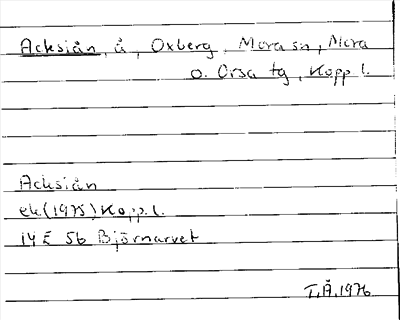 Acksiån, å, Oxberg, Mora sn, Mora
o. Orsa tg, Kopp l.
Acksiån
ek (1975) Kopp. l.
14 E 5b Björnarvet
T.Å. 1976